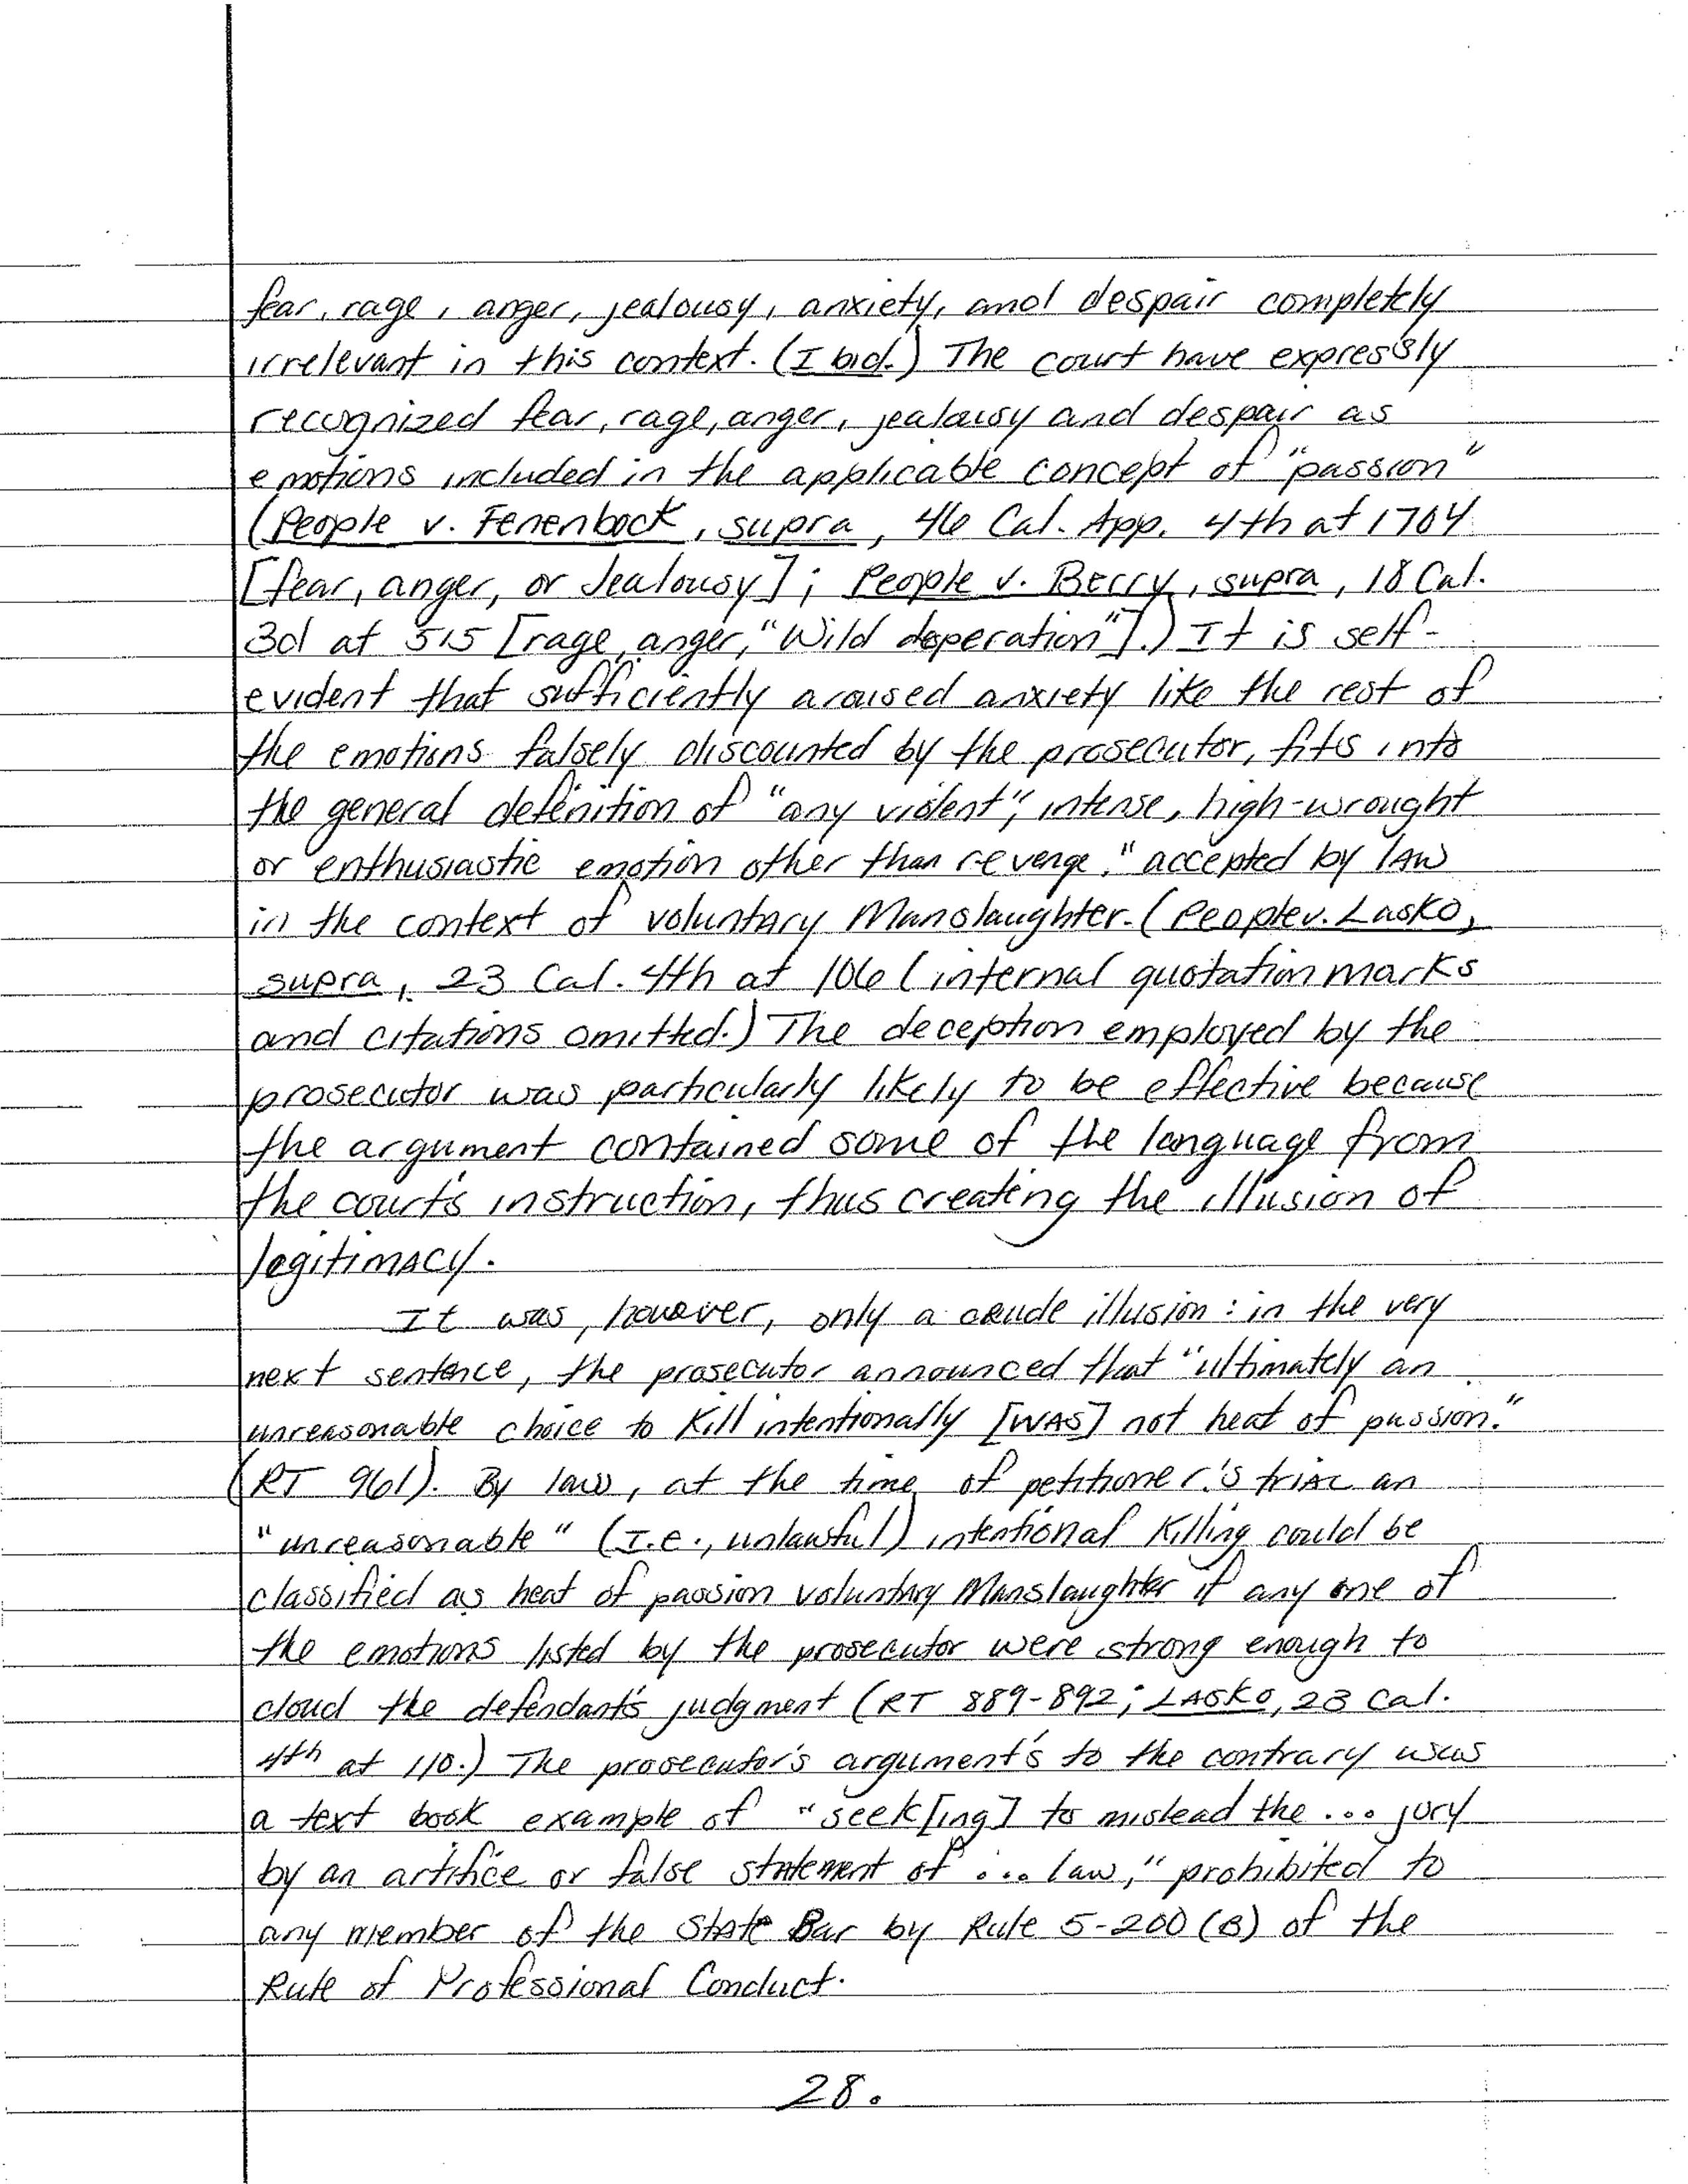 fear, rage, anger, jealousy, anxiety, and despair completely
irrelevant in this context. (Ibid.) The court have expressly
recognized fear, rage, anger, jealousy and despair as
emotions included in the applicable concept of "passion"
(People v. Fenenbock, supra, 46 Cal. App. 4th at 1704
[fear, anger, or Jealousy]; People v. Berry, supra, 18 Cal.
3d at 515 [rage, anger, "Wild desperation"].) It is self-
evident that sufficiently aroused anxiety like the rest of
the emotions falsely discounted by the prosecutor, fits into
the general definition of "any violent", intense, high-wrought
or enthusiastic emotion other than revenge," accepted by lAW
in the context of voluntary Manslaughter. (People v. Lasko,
supra, 23 Cal. 4th at 106 (internal quotation marks
and citations omitted.) The deception employed by the
prosecutor was particularly likely to be effective because
the argument contained some of the language from
the court's instruction, thus creating the illusion of
legitimacy.
It was, however, only a crude illusion: in the very
next sentence, the prosecutor announced that "ultimately an
unreasonable choice to Kill intentionally [WAS] not heat of passion."
(RT 961). By law, at the time of petitioner's triAL an
"unreasonable" (I.e., unlawful) intentional Killing could be
classified as heat of passion voluntary Manslaughter if any one of
the emotions listed by the prosecutor were strong enough to
cloud the defendant's judgment (RT 889-892; LASKO, 23 Cal.
4th at 110.) The prosecutor's argument's to the contrary was
a text book example of "seek[ing] to mislead the ... jury
by an artifice or false statement of ... law," prohibited to
any member of the State Bar by Rule 5-200 (B) of the
Rule of Professional Conduct.
28.